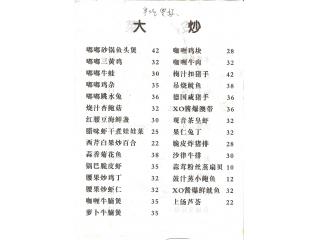 大 炒
嘟嘟砂锅鱼头煲 42
嘟嘟三黄鸡 32
嘟嘟牛蛙 30
嘟嘟鸡杂 35
嘟嘟跳水兔 36
烧汁杏鲍菇 32
红腰豆海鲜盏 30
腊味虾干煮娃娃菜 25
西芹白果炒百合 22
蒜香菊花鱼 38
锅巴脆皮虾 35
腰果炒鸡丁 32
腰果炒虾仁 32
咖喱牛腩煲 35
萝卜牛腩煲 35
咖喱鸡块 28
咖喱牛肉 32
梅汁扣猪手 42
吊烧鱿鱼 38
德国咸猪手 36
XO酱爆澳带
观音茶皇虾 32
果仁兔丁 32
脆皮炸猪排 28
沙律牛排 30
蒜茸粉丝蒸扇贝 10
豉汁蒸小鲍鱼 12
XO酱爆鲜鱿鱼 32
上汤芦荟 22